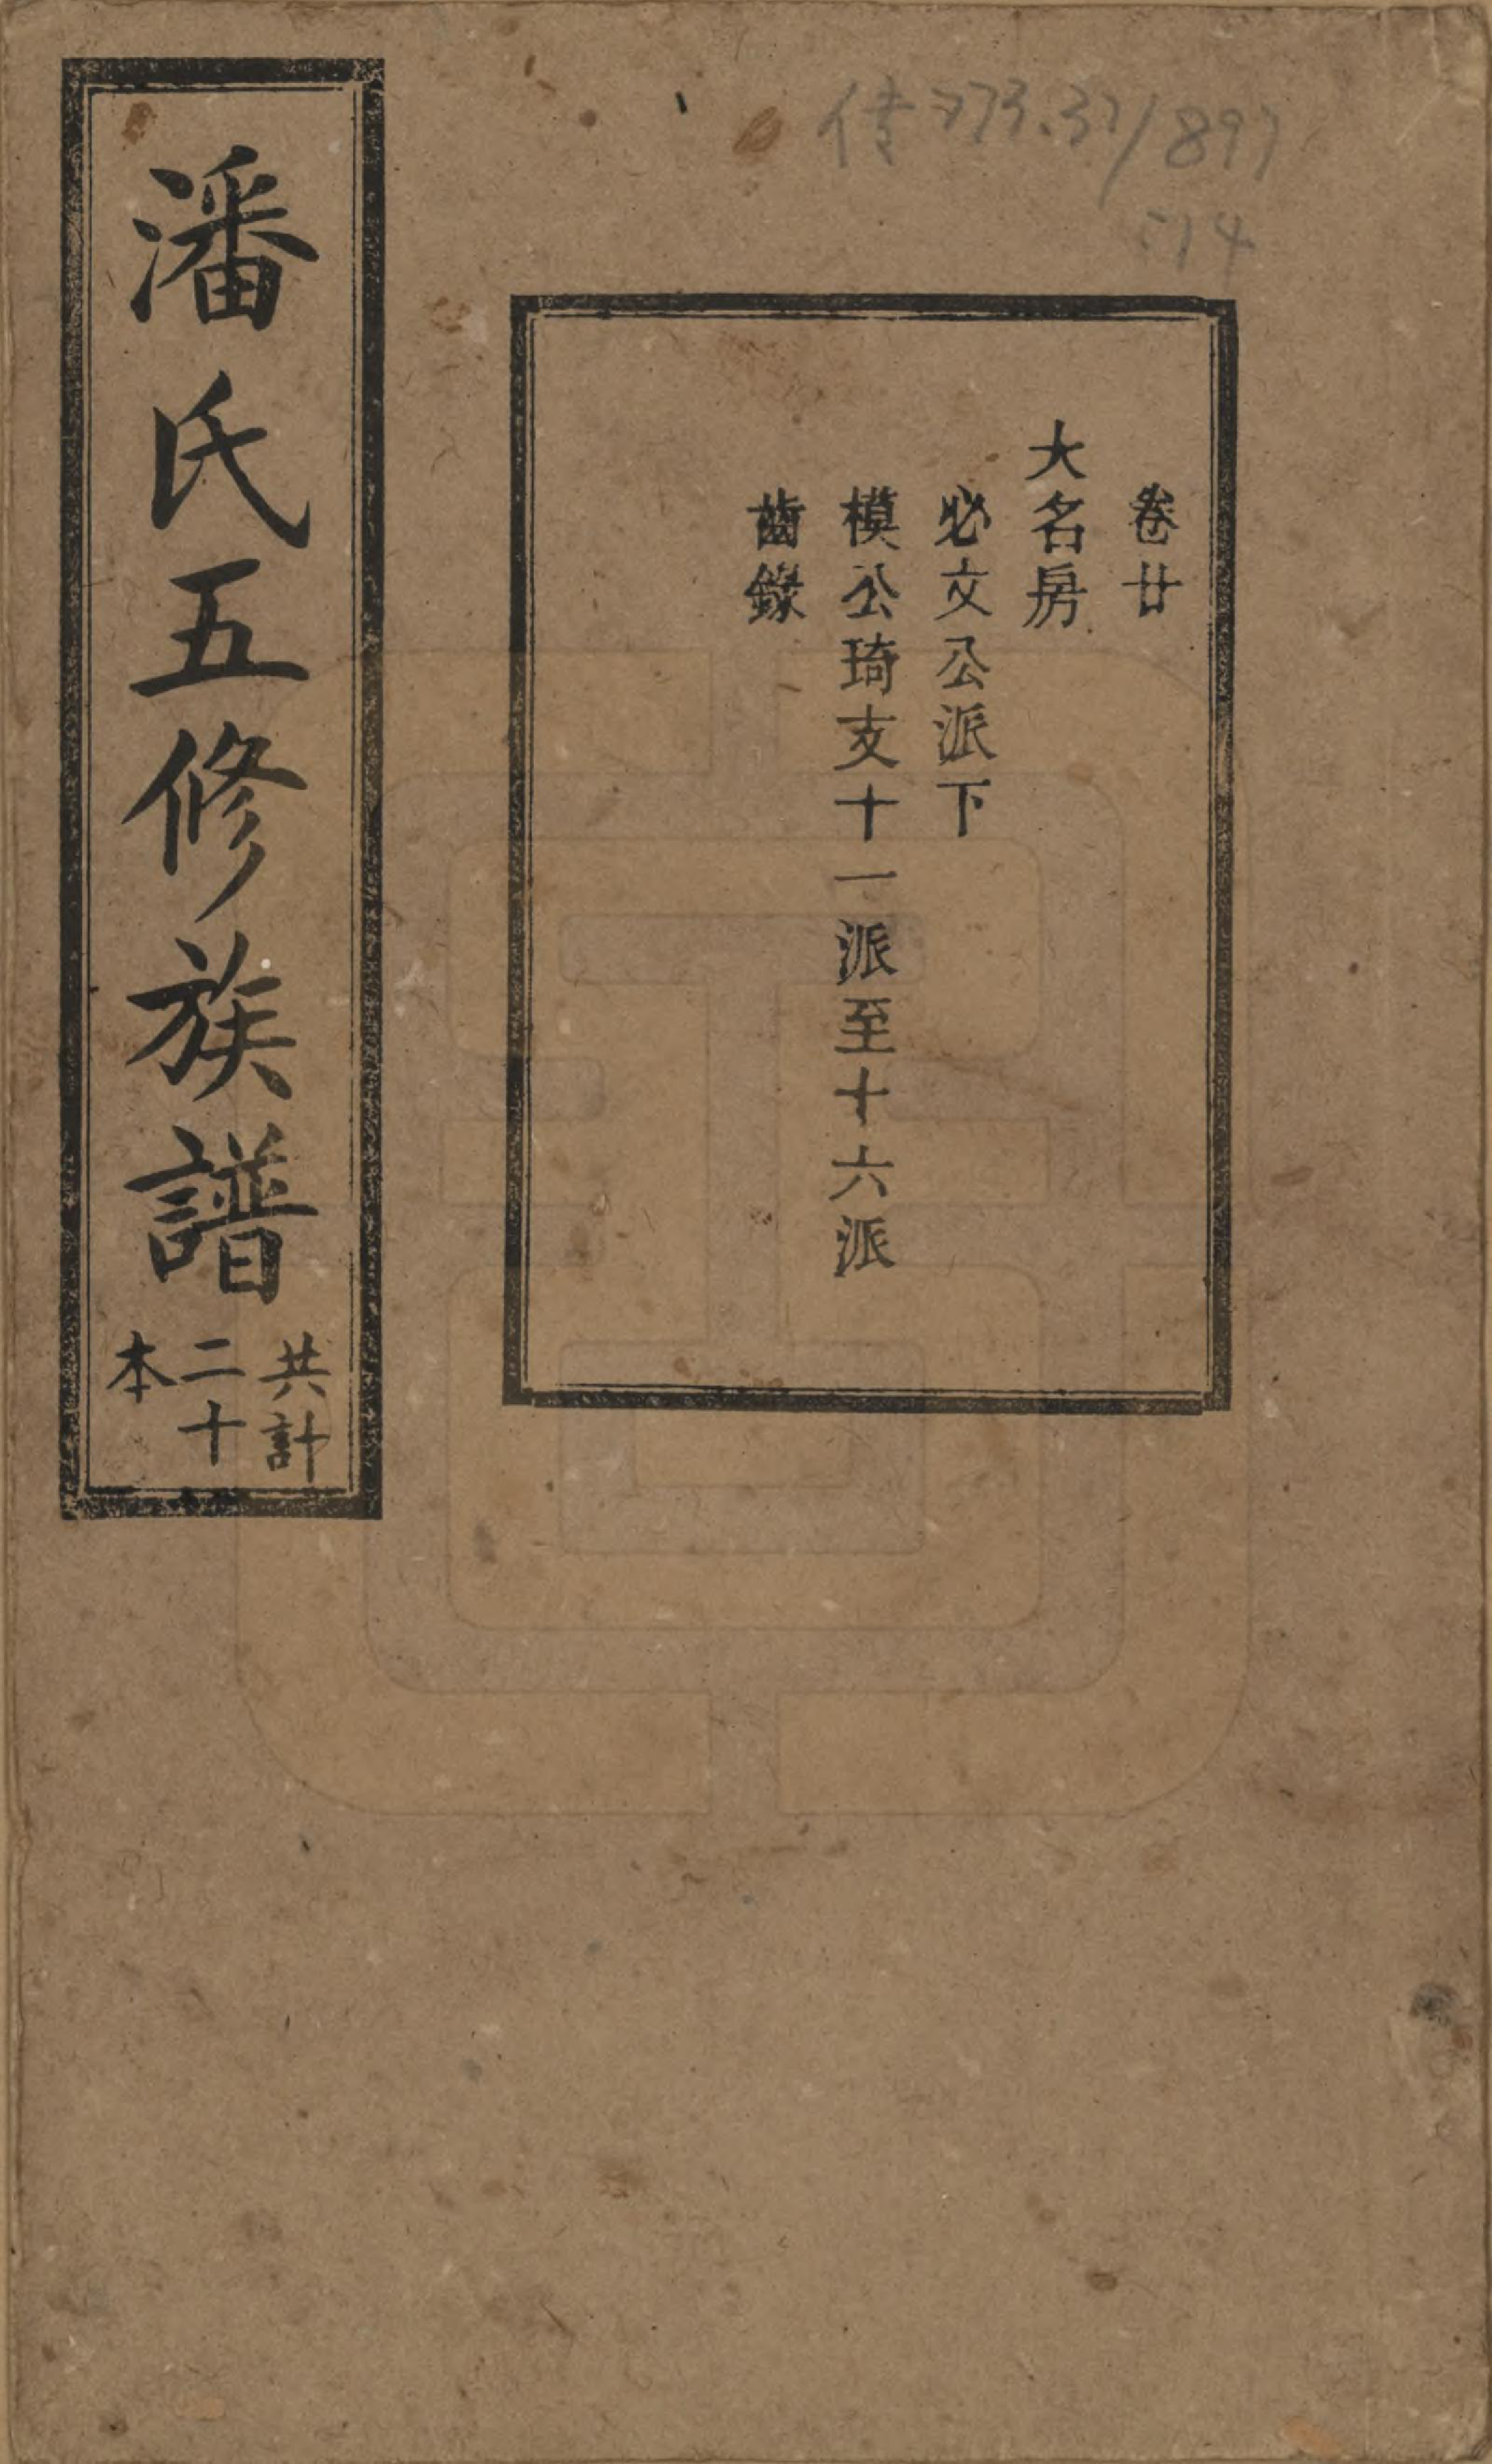 傳773.37/897
:14
卷廿
大名房
必文公派下
模公琦支十一派至十六派
齒錄
潘氏五修族譜
共計
二十
本